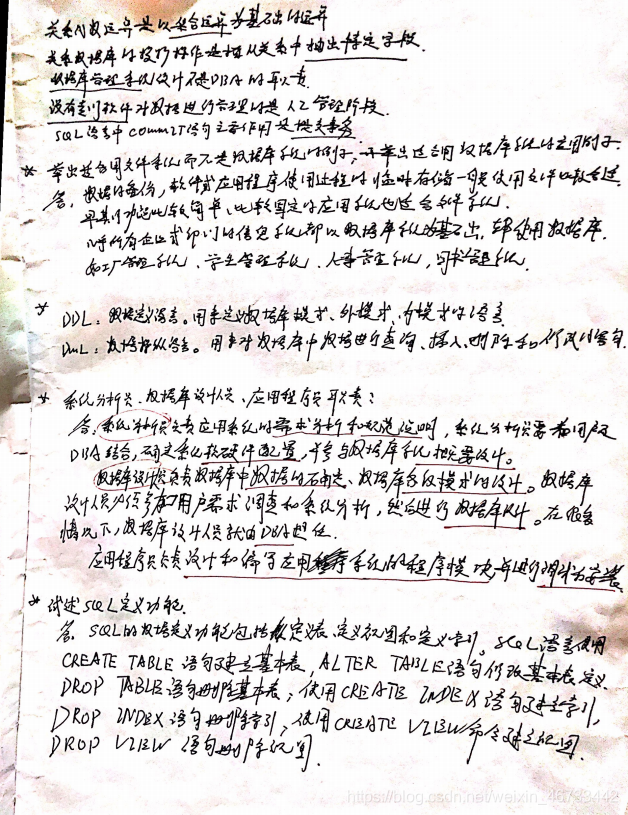 关系代数运算是以集合运算为基础的运算
关系数据库的投影操作是指从关系中抽出特定字段.
数据库管理系统设计不是DBA的职责.
没有专门软件对数据进行管理的是人工管理阶段.
SQL语言中COMMIT语句主要作用是提交事务
* 举出适合用文件系统而不是数据库系统的例子,再举出适合用数据库系统的应用例子.
答. 数据的备份,软件或应用程序使用过程的临时存储一般使用文件比较合适.
早期功能比较简单、比较固定的应用系统也适合文件系统.
几乎所有企业或部门的信息系统都以数据库系统为基础,都使用数据库.
如工厂管理系统、学生管理系统、人事管理系统,图书管理系统.
* DDL:数据定义语言。用来定义数据库模式、外模式、内模式的语言
DML:数据操纵语言。用来对数据库中数据进行查询、插入、删除和修改的语句
* 系统分析员、数据库设计人员、应用程序员职责:
答:系统分析员负责应用系统的需求分析和规范说明,系统分析员要和用户及
DBA结合,确定系统软硬件配置,并参与数据库系统概要设计。
数据库设计人员负责数据库中数据的确定、数据库各级模式的设计。数据库
设计人员必须参加用户需求调查和系统分析,然后进行数据库设计。在很多
情况下,数据库设计人员就由DBA担任.
应用程序员负责设计和编写应用系统的程序模块并进行调试和安装
* 试述SQL定义功能.
答. SQL的数据定义功能包括定义表、定义视图和定义索引。SQL语言使用
CREATE TABLE 语句建立基本表, ALTER TABLE语句修改基本表定义.
DROP TABLE语句删除基本表;使用CREATE INDEX语句建立索引,
DROP INDEX语句删除索引;使用CREATE VIEW命令建立视图.
DROP VIEW 语句删除视图.
https://blog.csdn.net/weixin_46723442